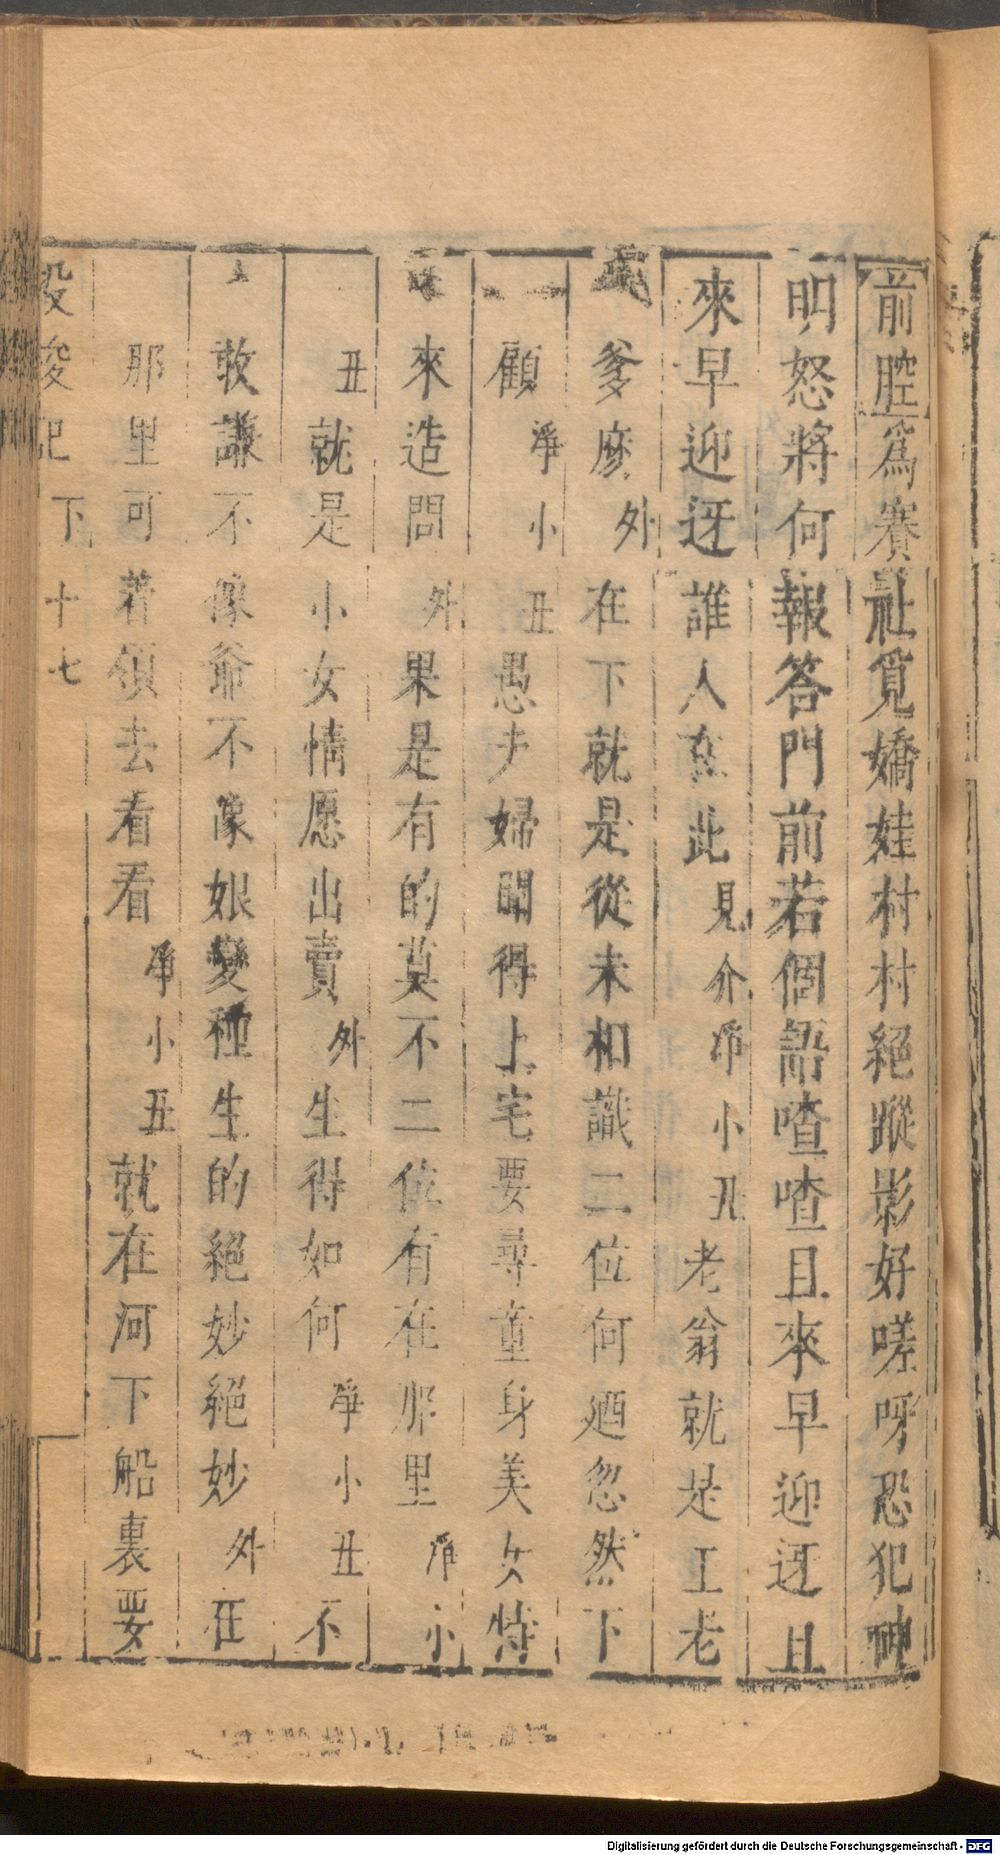 前腔為賽社覓嬌娃村村絕蹤影好嗟呀恐犯神
明怒將何報答門前若個語喳喳且來早迎迓且
來早迎迓誰人在此見介淨小丑老翁就是工老
爹麼外在下就是從未相識二位何迺忽然下
顧淨小丑愚夫婦聞得上宅要尋童身美女特
來造問外果是有的莫不二位有在那里淨小
丑就是小女情愿出賣外生得如何淨小丑不
敢謙不像爺不像娘變種生的絕妙絕妙外在
那里可着領去看看淨小丑就在河下船裏要
投梭記 下 十七
Digitalisierung gefördert durch die Deutsche Forschungsgemeinschaft - DFG